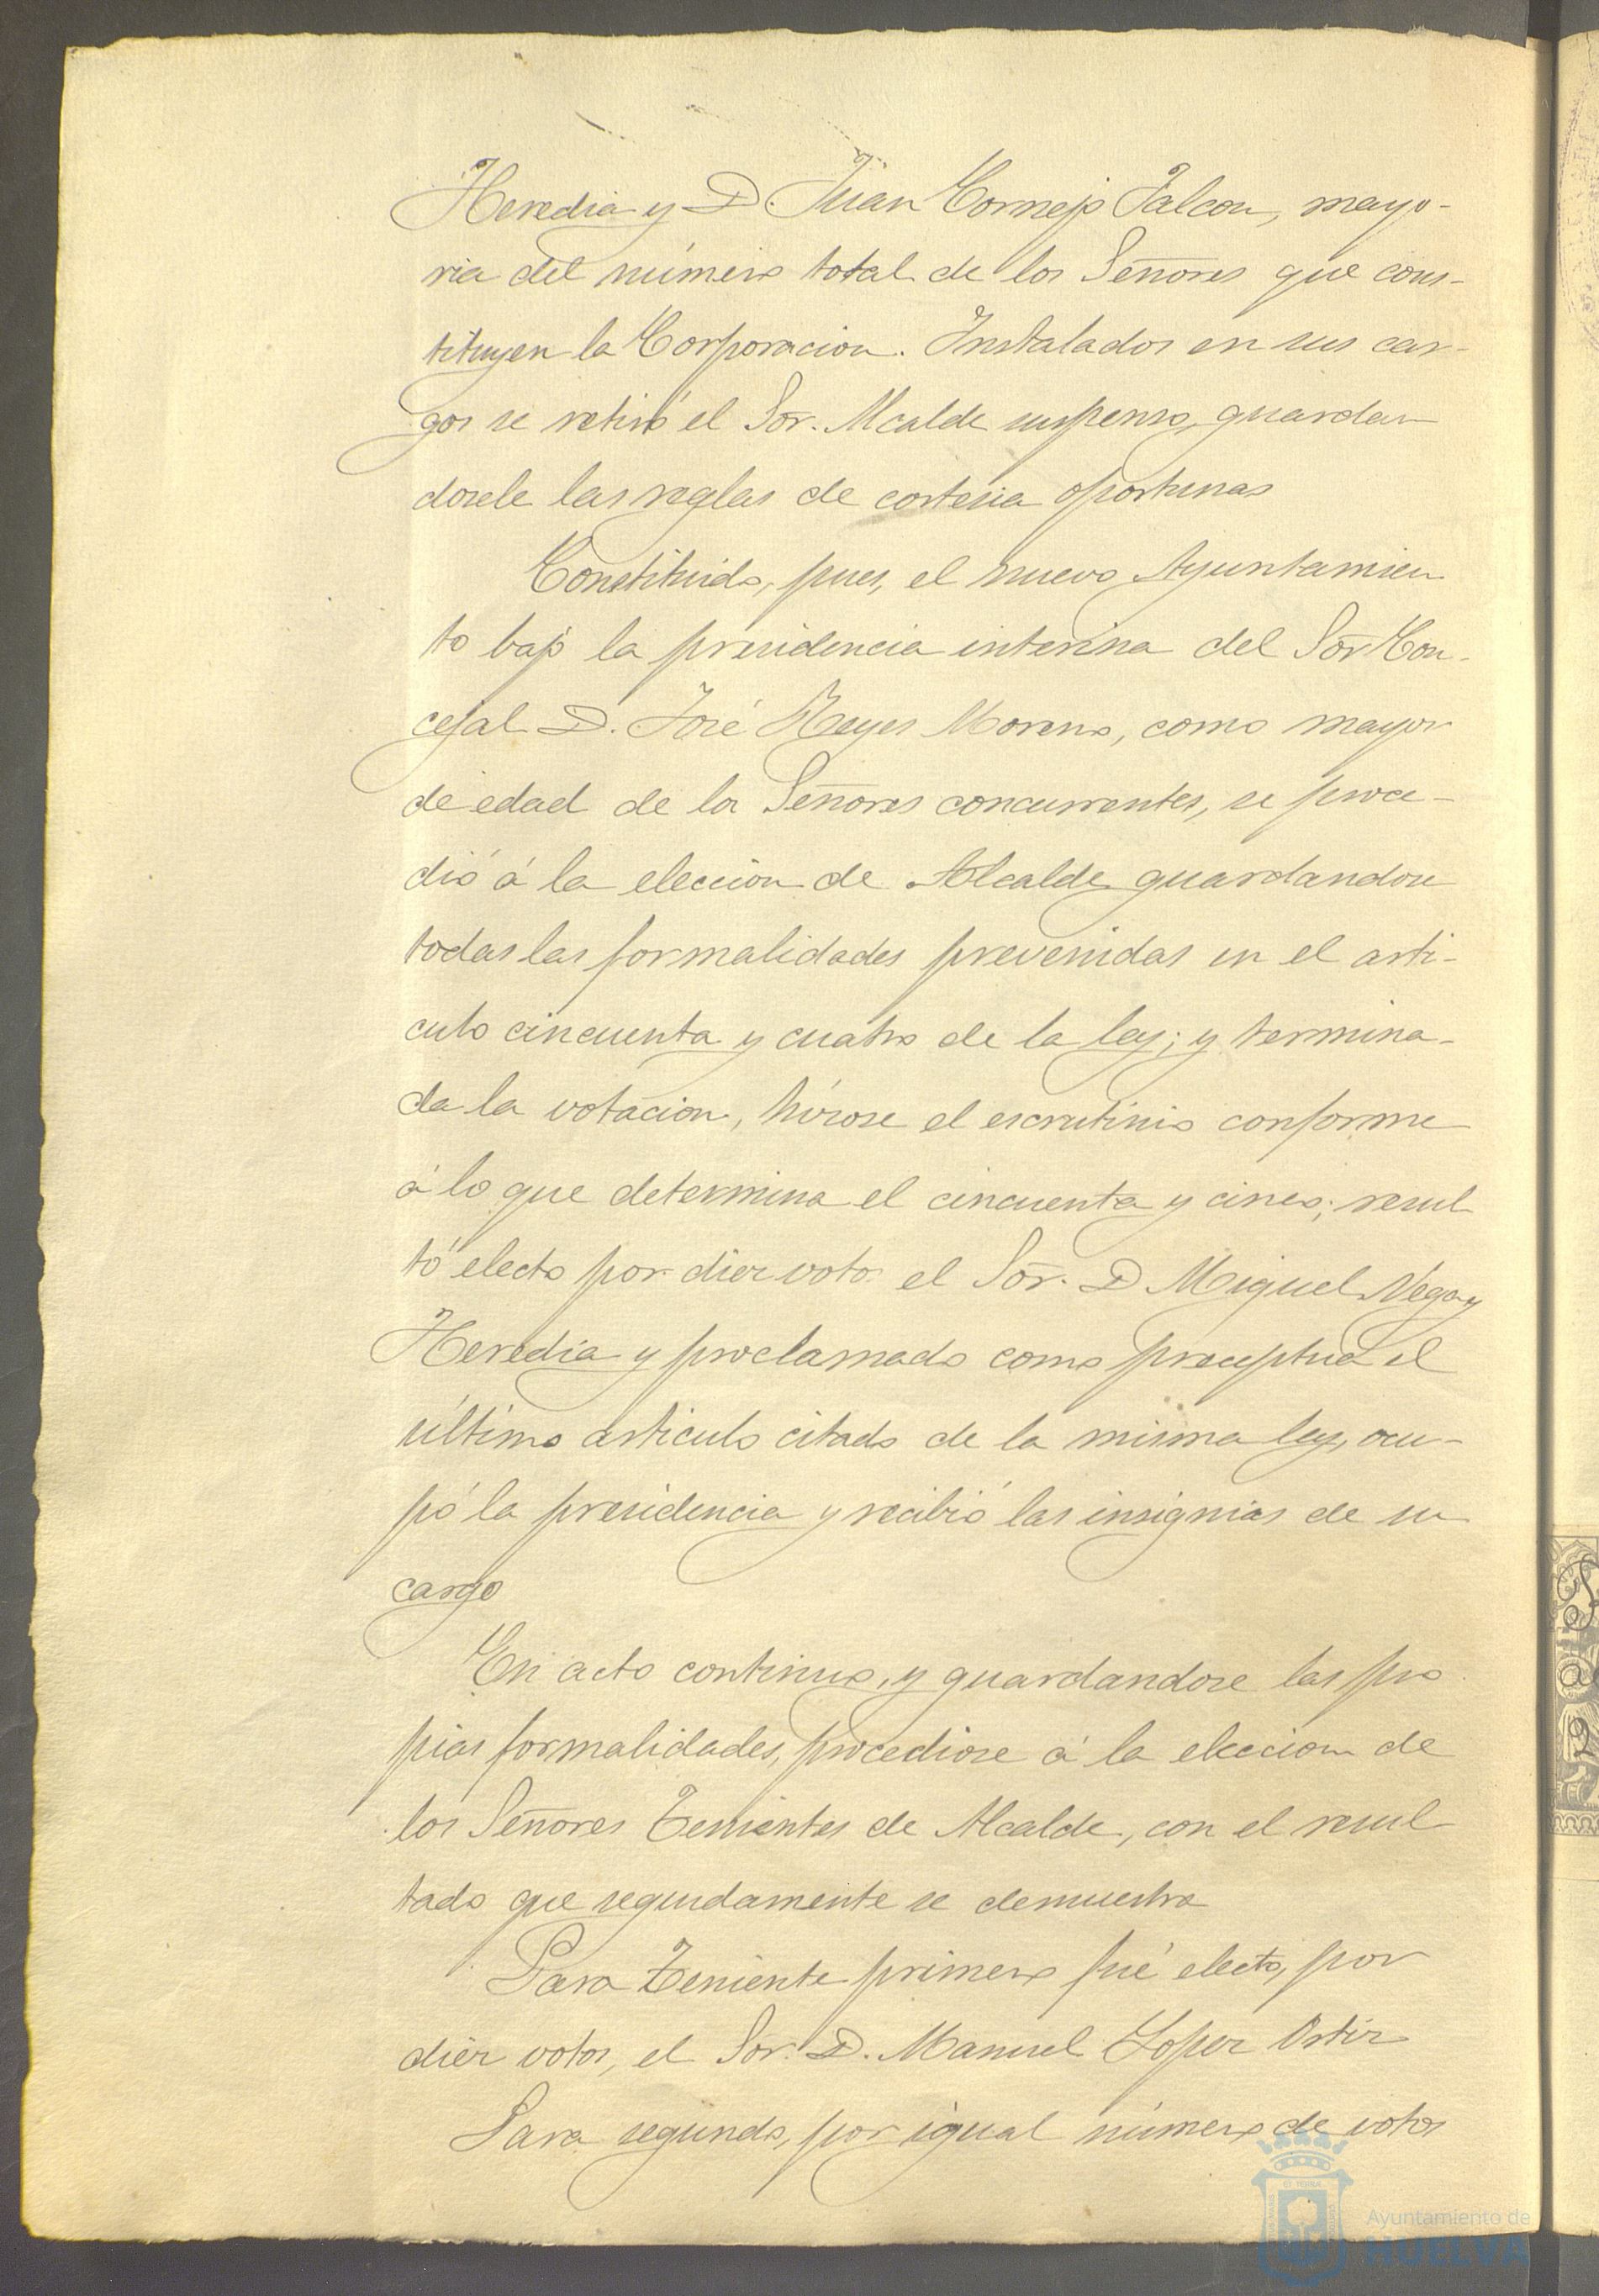 Heredia y D. Juan Cornejo Falcon, mayo-
ria del número total de los Señores que cons-
tituyen la Corporacion. Instalados en sus car-
gos se retiró el Sor. Alcalde suspenso, guardan
dosele las reglas de cortesia oportunas
Constituido, pues, el nuevo Ayuntamien
to bajo la presidencia interina del Sor Con-
cejal D. José Reyes Moreno, como mayor
de edad de los Señores concurrentes, se proce-
dió á la eleccion de Alcalde guardandose
todas las formalidades prevenidas en el arti-
culo cincuenta y cuatro de la ley; y termina-
da la votacion, hizose el escrutinio conforme
á lo que determina el cincuenta y cinco; resul
tó electo por diez votos el Sor. D Miguel Vega y
Heredia y proclamado como preceptua el
último articulo citado de la misma ley, ocu-
pó la presidencia y recibió las insignias de su
cargo
En acto continuo, y guardandose las pro
pias formalidades, procediose á la eleccion de
los Señores Tenientes de Alcalde, con el resul
tado que seguidamente se demuestra
Para Teniente primero fué electo, por
diez votos, el Sor. D. Manuel Lopez Ortiz
Para segundo, por igual número de votos
Ayuntamiento de
HUELVA